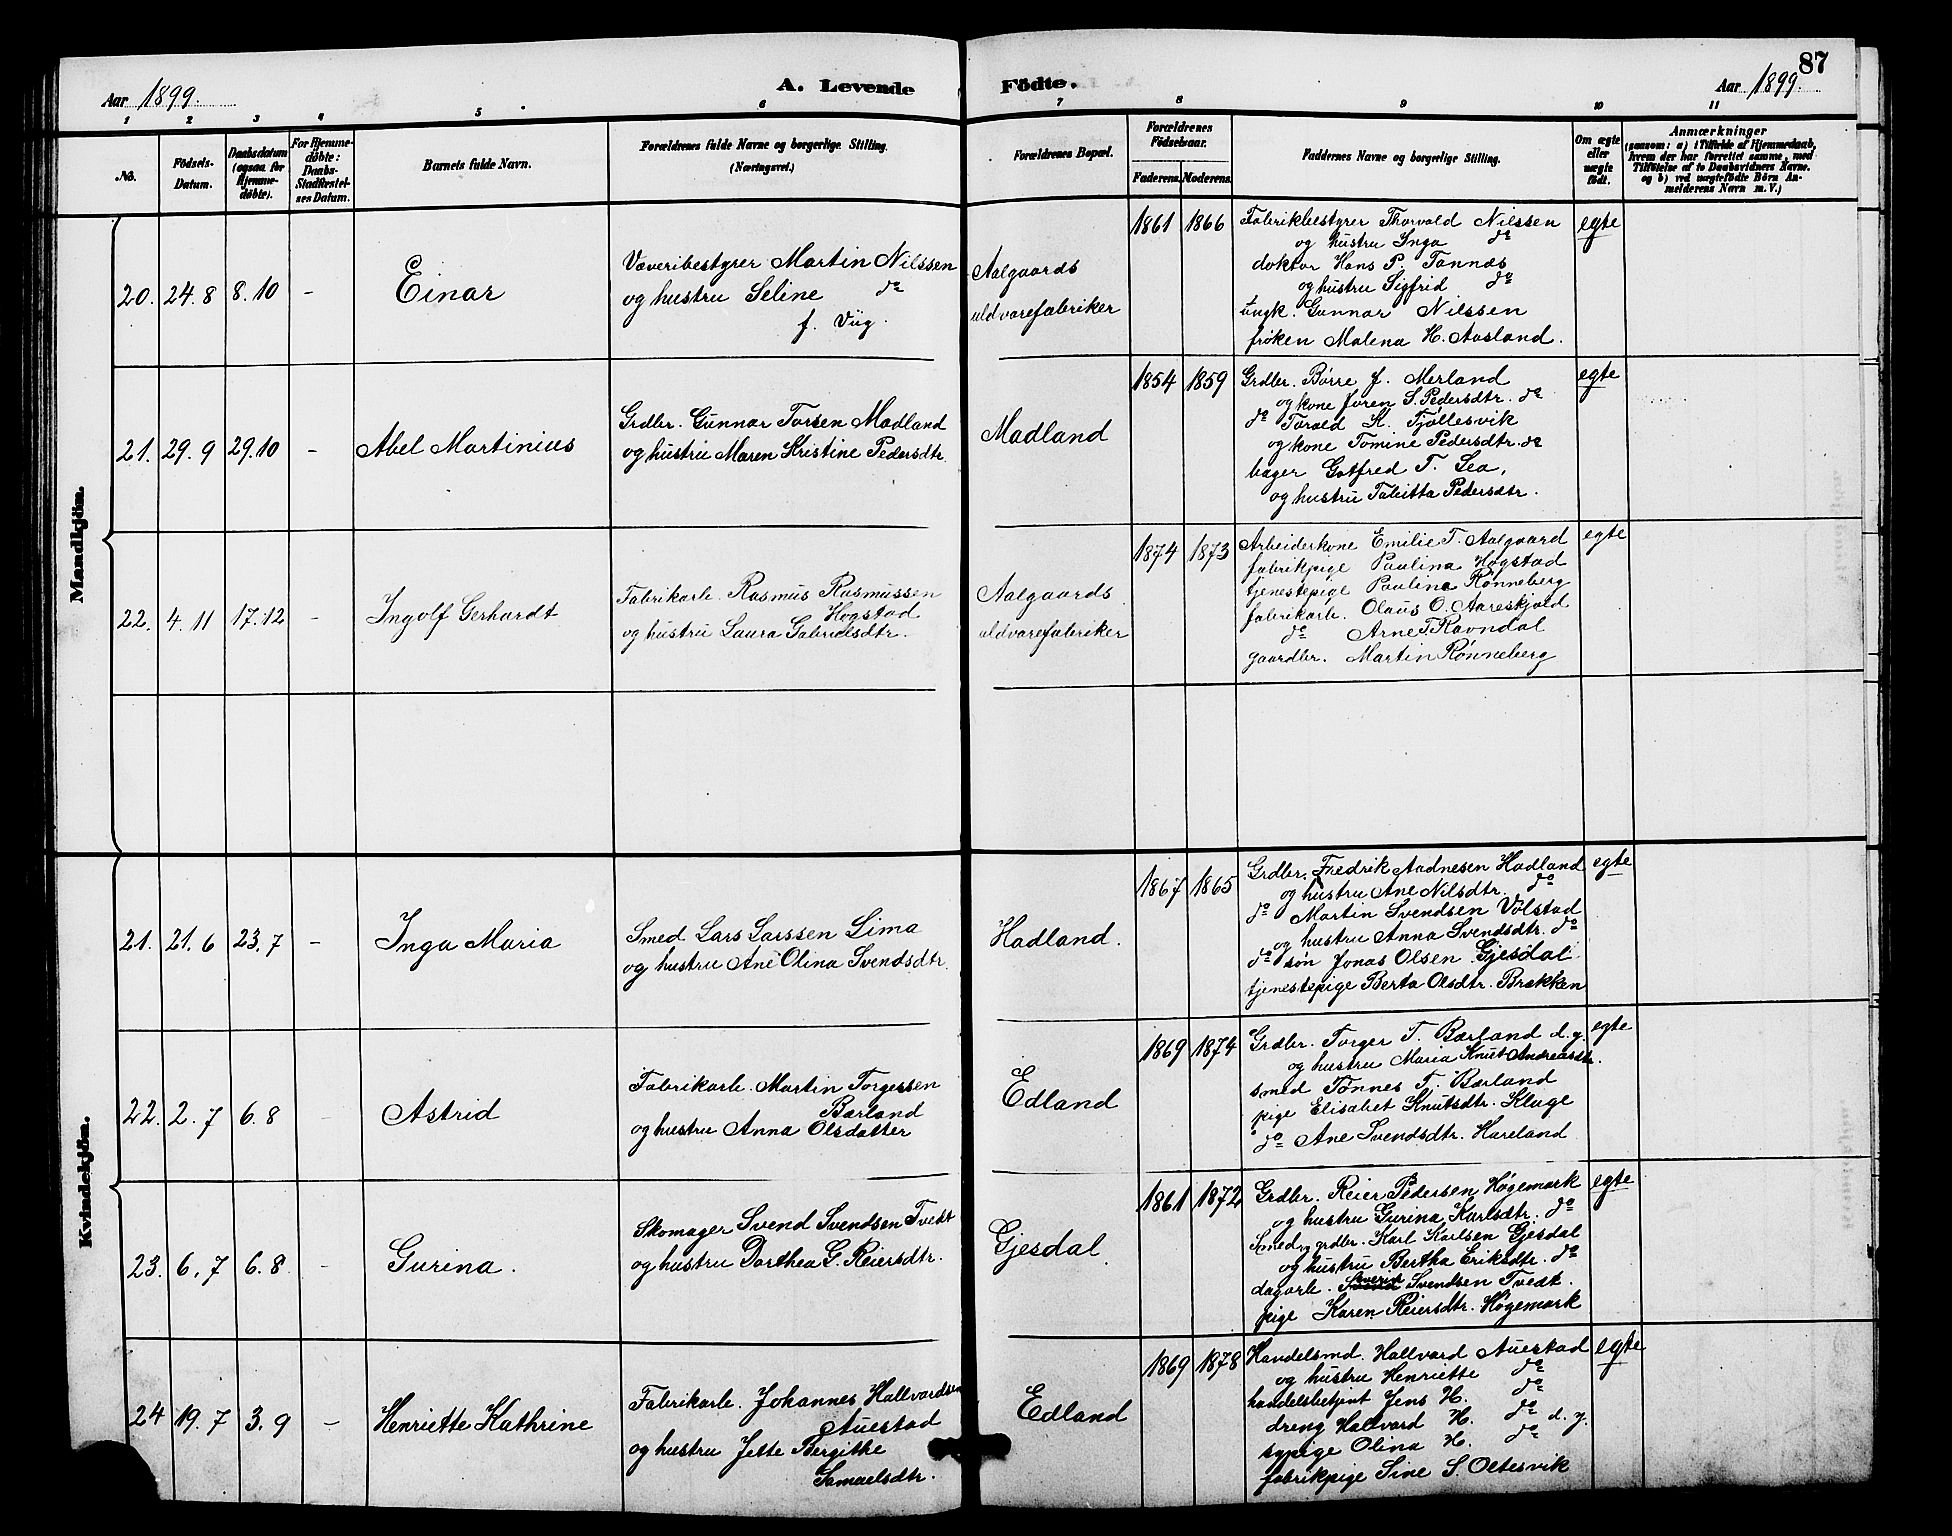 87
Aar 1899.
A. Levende Födte.
Aar 1899.
1 2 3 4 5 6 7 8 9 10 11
No.
Födsels-Datum.
Daabsdatum (ogsaa for Hjemmedøbte).
For Hjemmedøbte: Daabs-Stadfæstelses Datum.
Barnets fulde Navn.
Forældrenes fulde Navne og borgerlige Stilling.
(Næringsvei.)
Forældrenes Bopæl.
Forældrenes Födselsaar.
Faderens. Moderens.
Faddernes Navne og borgerlige Stilling.
Om ægte eller uægte født.
Anmærkninger
(saasom: a) i Tilfælde af Hjemmedaab, hvem der har forrettet samme, med Tilføielse af to Daabsvidners Navne, og b) ved uægtefødte Börn Anmelderens Navn m. V.)
Mandkjön.
20. 24.8 8.10 - Einar
Væveribestyrer Martin Nilssen
og hustru Seline do
f. Viig.
Aalgaards
uldvarefabriker
1861 1866
Fabrikbestyrer Thorvald Nilssen
og hustru Inga do
doktor Hans P. Tannæs
og hustru Sigfrid do
ungk. Gunnar Nilssen
frøken Malena H. Aasland.
egte
21. 29.9 29.10 - Abel Martinius
Grdbr. Gunnar Torsen Madland
og hustru Maren Kristine Pedersdtr.
Madland
1854 1859
Grdbr. Børre J. Merland
og kone Joren S. Pedersdtr. do
do Torald K. Fjøllesvik
og kone Tomine Pedersdtr. do
bager Gotfred T. Lea,
og hustru Tabitta Pedersdtr.
egte
22. 4.11 17.12 - Ingolf Gerhardt
Fabrikarb. Rasmus Rasmussen
Høgstad
og hustru Laura Gabrielsdtr.
Aalgaards
uldvarefabriker
1874 1873
Arbeiderkone Emilie T. Aalgaard
fabrikpige Paulina Høgstad
tjenestepige Paulina Rønneberg
fabrikarb. Olaus O. Aareskjold
do Arne T. Ravndal
gaardbr. Martin Rønneberg
egte
Kvindekjön.
21. 21.6 23.7 - Inga Maria
Smed Lars Larssen Lima
og hustru Ane Olina Svendsdtr.
Hadland.
1867 1865
Grdbr. Fredrik Aadnesen Hadland
og hustru Ane Nilsdtr. do
do Martin Svendsen Vølstad
og hustru Anna Svendsdtr. do
do søn Jonas Olsen Gjesdal
tjenestepige Berta Olsdtr. Brekken
egte
22. 2.7 6.8 - Astrid
Fabrikarb. Martin Torgersen
Bærland
og hustru Anna Olsdatter
Edland
1869 1874
Grdbr. Torger T. Bærland d. y.
og hustru Maria Knut Andreasdtr.
smed Tønnes T. Bærland
pige Elisabet Knutsdtr. Kluge
do Ane Svendsdtr. Hareland
egte
23. 6.7 6.8 - Gurina.
Skomager Svend Svendsen Tvedt
og hustru Dorthea G. Reiersdtr.
Gjesdal
1861 1872
Grdbr. Reier Pedersen Høgemork
og hustru Gurina Karlsdtr. do
Smed og grdbr. Karl Karlsen Gjesdal
og hustru Bertha Eriksdtr. do
dagarb. Sverin Svendsen Tvedt.
pige Karen Reiersdtr. Høgemork
egte
24 19.7 3.9 - Henriette Kathrine
Fabrikarb. Johannes Hallvardsen
Auestad
og hustru Jette Bergitke
Samuelsdtr.
Edland
1869 1878
Handelsmd. Hallvard Auestad
og hustru Henriette do
handelsbetjent Jens H. do
dreng Hallvard H. do d. y.
sypige Olina H. do
fabrikpige Sine S. Oltesvik
egte